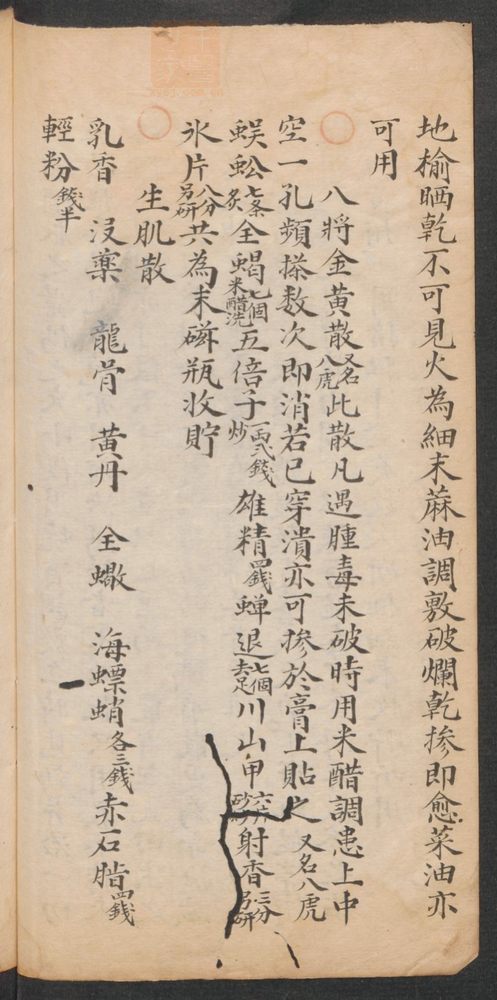 地榆晒乾不可見火為細末蔴油調敷破爛乾掺即愈菜油亦
可用
八將金黄散又名八虎此散凡遇腫毒未破時用米醋調患上中
空一孔頻搽数次即消若已穿潰亦可掺於膏上貼之又名八虎
蜈蚣七条炙全蝎七個米醋洗五倍子一両弍錢炒雄精四錢蟬退七個去足川山甲炒射香三分另研
氷片八分另研共為末磁瓶收貯
生肌散
乳香 没藥 龍骨 黄丹 全蠍 海螵蛸各三錢赤石脂四錢
輕粉錢半